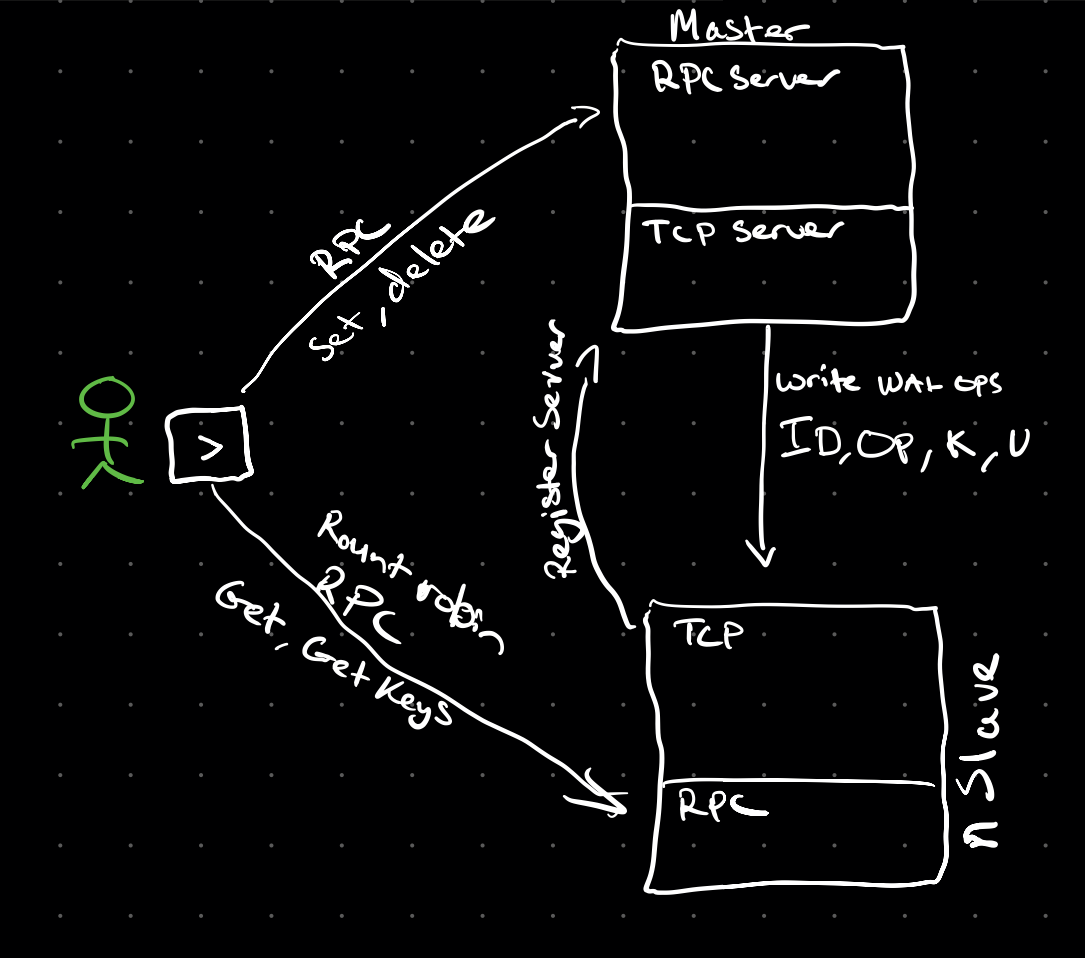 Master
RPC Server
TCP Server
RPC
Set, delete
>
Register Server
Write WAL OPS
ID, Op, K, V
Rount robin
RPC
Get, Get Keys
TCP
RPC
n Slave